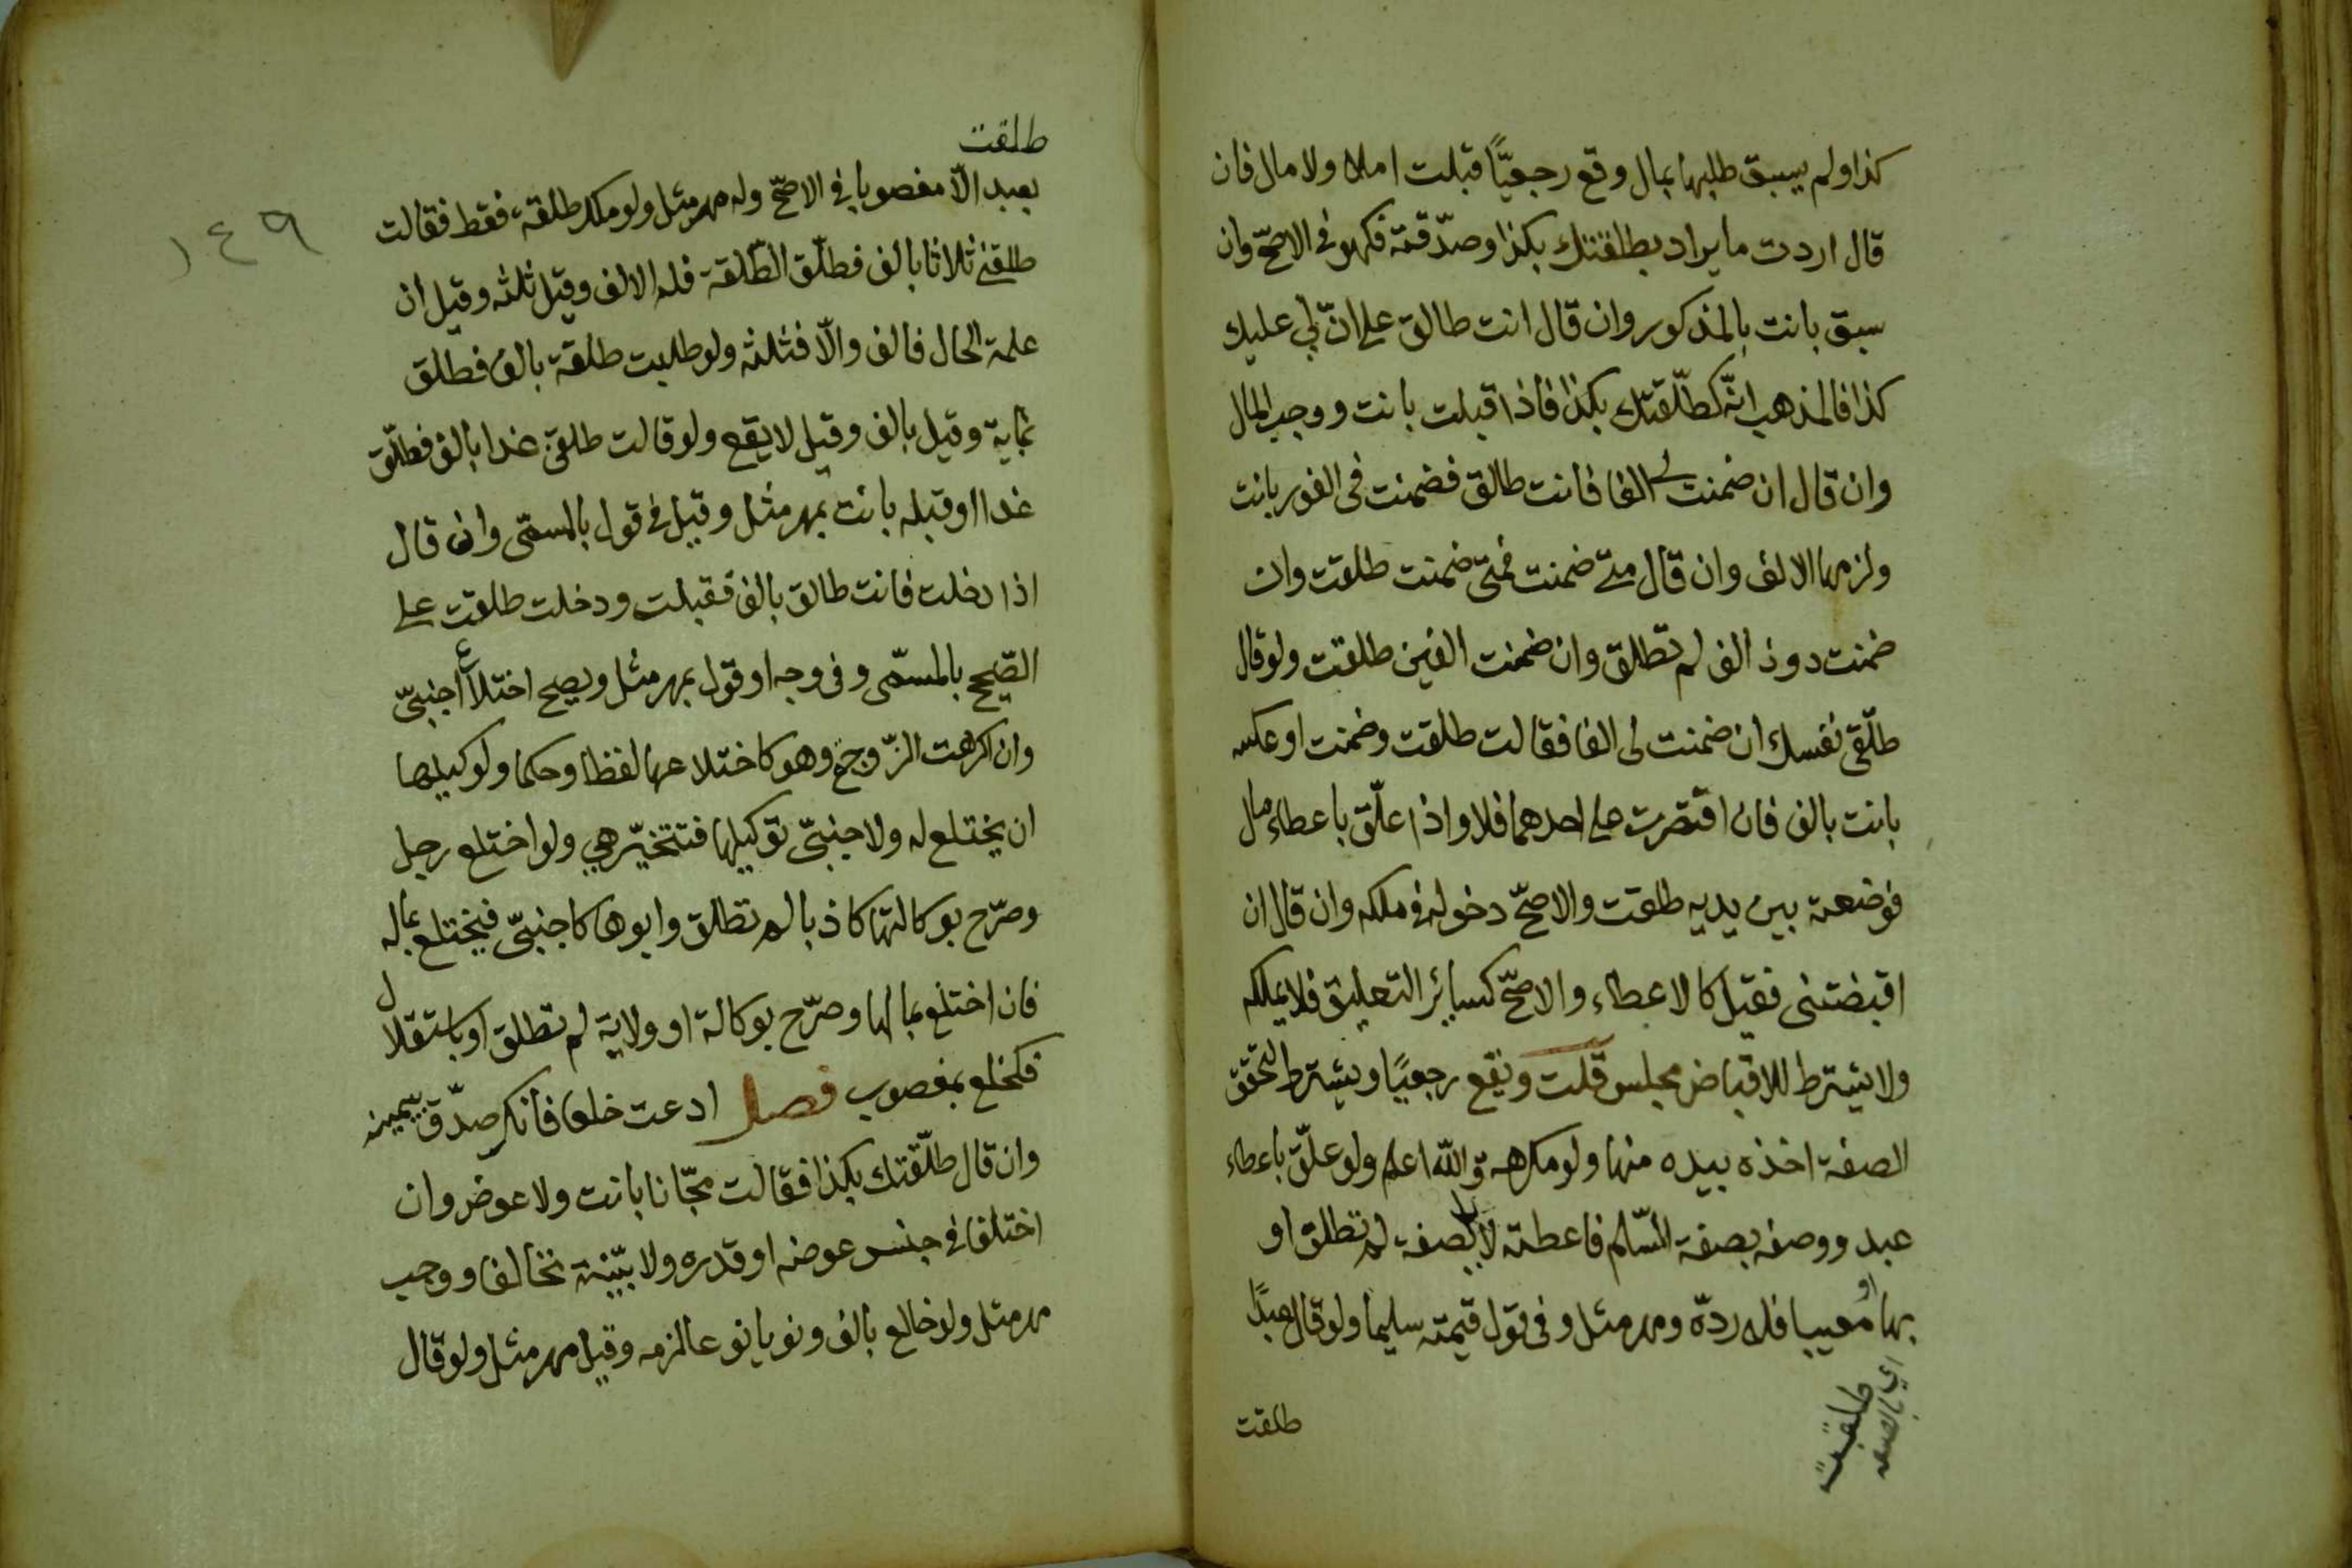 كذا ولم يسبق طلبها بمال وقع رجعيًّا قبلت ام لا ولا مال فان
قال اردت ما يراد بطلقتك بكذا وصدّقته فكهو في الاصحّ وان
سبق بانت بالمذكور وان قال انت طالق على انّ لي عليك
كذا فالمذهب انّه كطلّقتك بكذا فاذا قبلت بانت ووجب المال
وان قال ان ضمنت لي الفا فانت طالق فضمنت فى الفور بانت
ولزمها الالف وان قال متى ضمنت فمتى ضمنت طلقت وان
ضمنت دون الف لم تطلق وان ضمنت الفين طلقت ولو قال
طلّقى نفسك ان ضمنت لى الفا فقالت طلقت وضمنت او عكسه
بانت بالف فان اقتصرت على احدهما فلا واذا علّق باعطاء مال
فوضعته بين يديه طلقت والاصحّ دخوله في ملكه وان قال ان
اقبضتنى فقيل كالاعطاء والاصحّ كسائر التعليق فلا يملكه
ولا يشترط للاقباض مجلس قلت ويقع رجعيًا ويشترط لتحقق
الصفة اخذه بيده منها ولو مكرهة والله اعلم ولو علّق باعطاء
عبد ووصفه بصفة السّلم فاعطته لا بالصفة لم تطلق او
بها او معيبا فله ردّه ومهر مثل وفى قول قيمته سليما ولو قال عبدًا
اي بالصفة
طلقت
طلقت
طلقت
بعبد الّا مغصوبا في الاصحّ وله مهر مثل ولو ملك طلقة فقط فقالت
١٤٩
طلقني ثلاثا بالف فطلّق الطّلقة فله الالف وقيل ثلثه وقيل ان
علمة الحال فالف والّا فثلثه ولو طلبت طلقة بالف فطلق
بماية وقيل بالف وقيل لا يقع ولو قالت طلقني غدا بالف فطلّق
غدا او قبله بانت بمهر مثل وقيل في قول بالمسمّى وان قال
اذا دخلت فانت طالق بالف فقبلت ودخلت طلقت على
الصّحيح بالمسمّى وفى وجه او قول بمهر مثل ويصح اختلاع اجنبيّ
وان كرهت الزّوجة وهو كاختلاعها لفظا وحكما ولوكيلها
ان يختلع له ولاجنبيّ توكيلها فتتخيّر هي ولو اختلع رجل
وصرّح بوكالتها كاذبا لم تطلق وابوها كاجنبيّ فيختلع بماله
فان اختلع بمالها وصرّح بوكالة او ولاية لم تطلق او باستقلال
فكخلع بمغصوب فصل ادعت خلعا فانكر صدّق بيمينه
وان قال طلّقتك بكذا فقالت مجّانا بانت ولا عوض وان
اختلفا في جنس عوضه او قدره ولا بيّنة تخالفا ووجب
مهر مثل ولو خالع بالف ونويا نوعا لزمه وقيل مهر مثل ولو قال